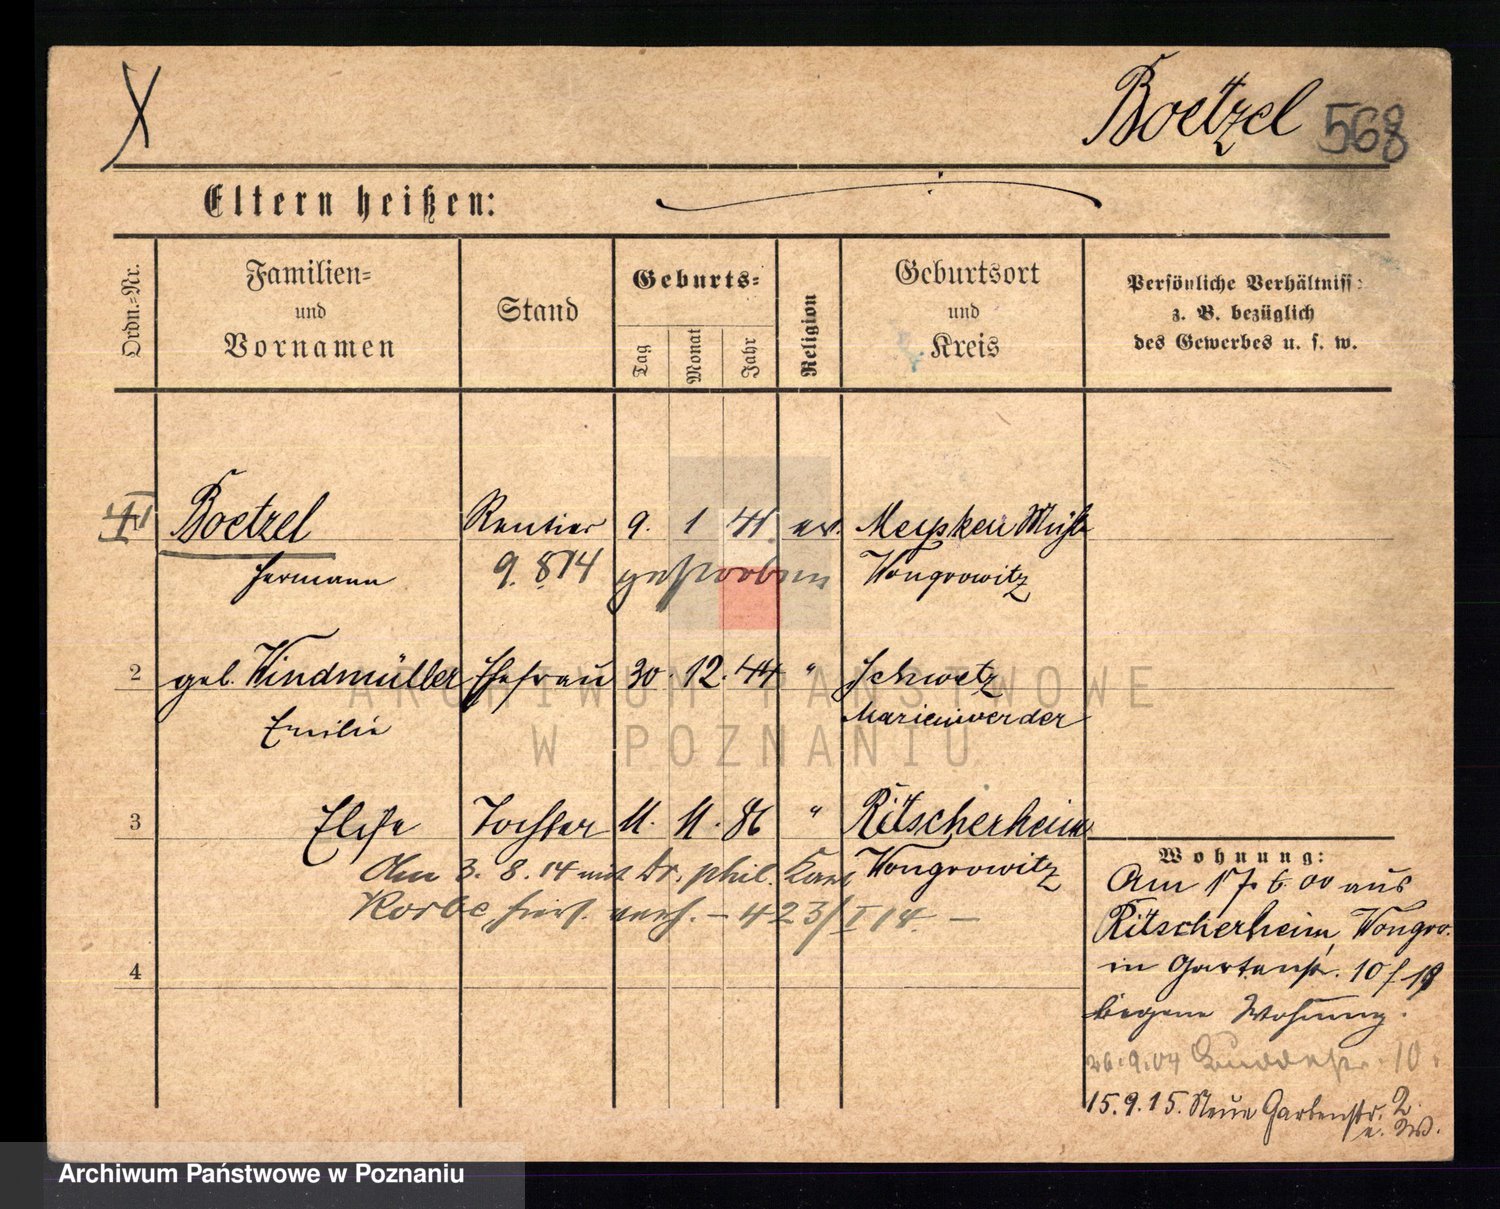 Boetzel 568
Eltern heißen:
Ordn.-Nr.
Familien-
und
Vornamen
Stand
Geburts-
Tag
Monat
Jahr
Religion
Geburtsort
und
Kreis
Persönliche Verhältniss
z. B. bezüglich
des Gewerbes u. s. w.
Boetzel Rentier 9. 1 41. ev.
Hermann 9.8.14 gestorben Wongrowitz
2 geb. Windmüller Ehefrau 30. 12. 44 " Schwetz
Emilie Marienwerder
3 Elise Tochter 11. 11. 86 " Ritscherheim
Wongrowitz
Am 3. 8. 14 mit Dr. phil. Karl
Korbe, hier, verh. – 423/I 14. –
4
Wohnung:
Am 17. 6. 00 aus
Ritscherheim, Wongro.
in Gartenstr. 10
Eigene Wohnung.
26.9.04 10.
15.9.15. Neue Gartenstr. 2.
ARCHIWUM PAŃSTWOWE
W POZNANIU
Archiwum Państwowe w Poznaniu